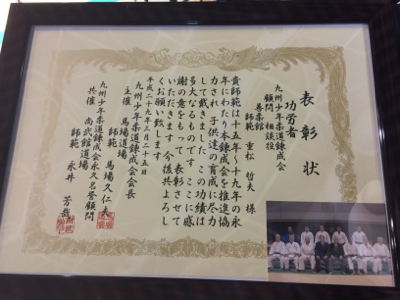 表彰状
功労者
九州少年柔道錬成会
顧問 相談役
善柔館
師範 重松 哲夫 様
貴師範は十五年～十九年の永
年にわたり本錬成会を推進協
力され子供達の育成に尽力
して戴きました この功績は
多大なるものです ここに感
謝の意をもって 表彰させて
いただきます 今後共よろし
くお願い致します
平成二十九年三月二十五日
九州少年柔道錬成会会長
主催 馬場道場
師範 馬場久仁夫
九州少年柔道錬成会永久名誉顧問
共催 尚武館道場
師範 永井 芳哉